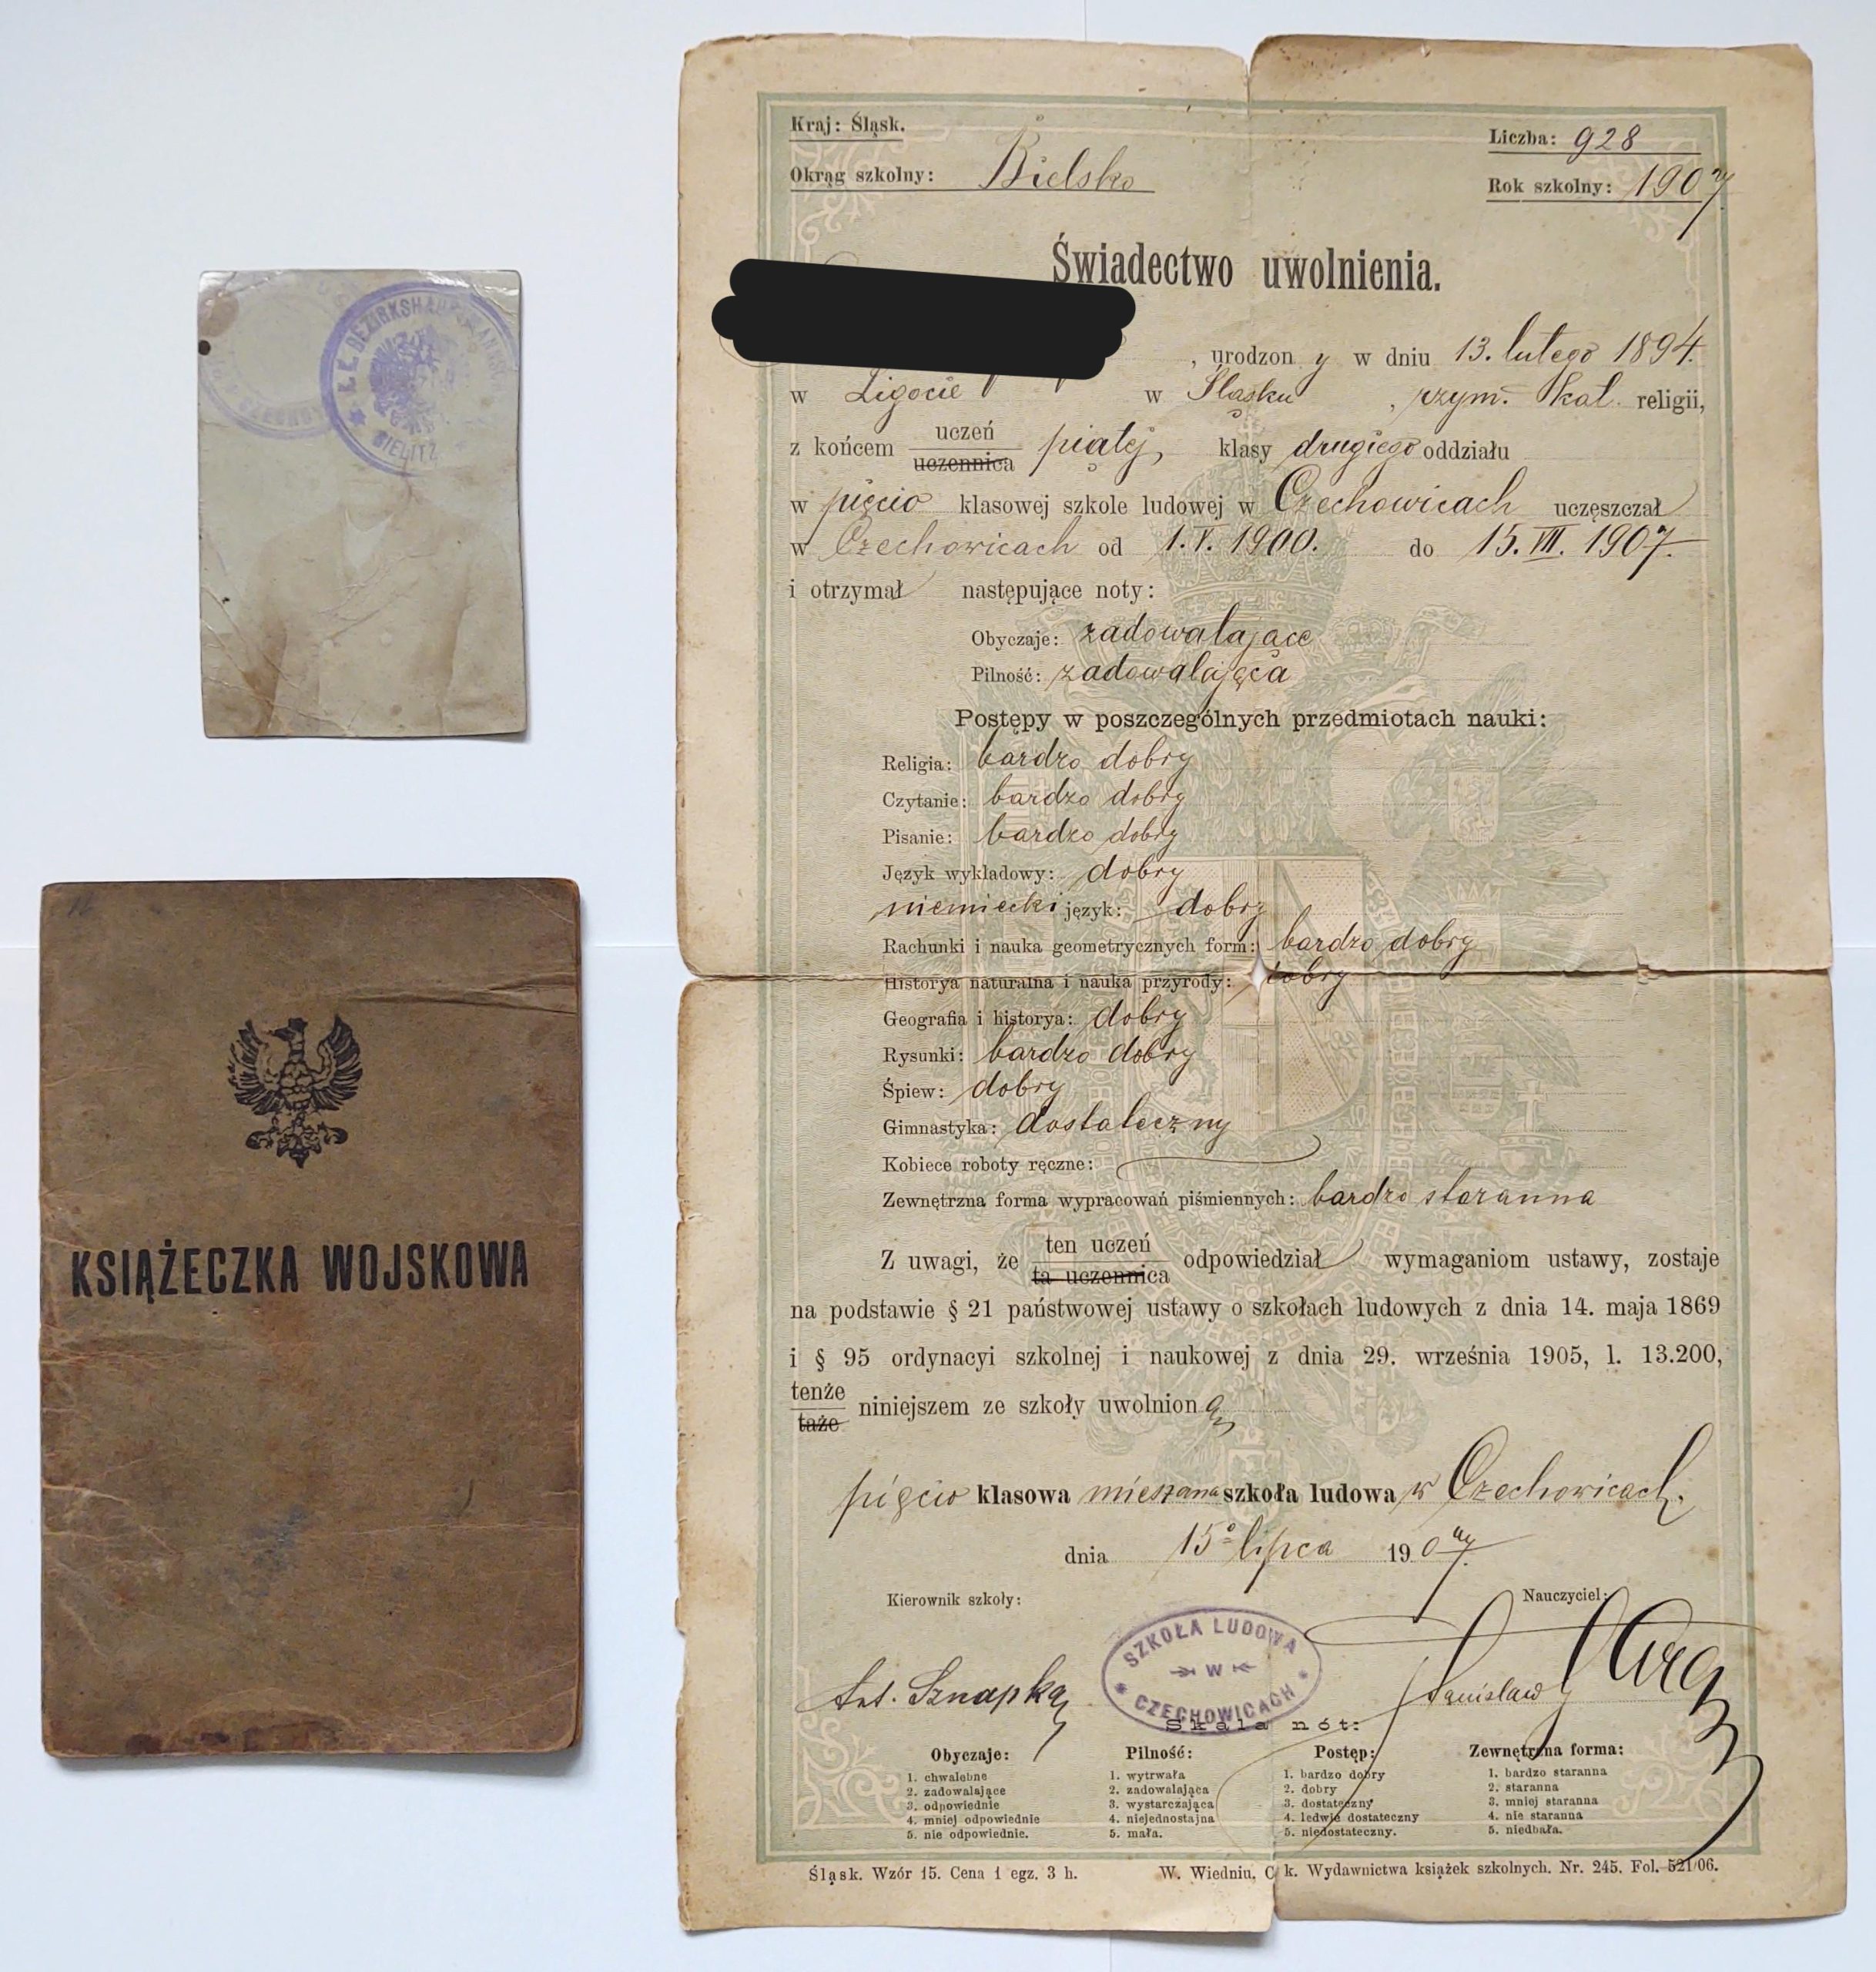 K. K. BEZIRKSHAUPTMANNSCHAFT
BIELITZ
KSIĄŻECZKA WOJSKOWA
Kraj: Śląsk.
Liczba: 928
Okrąg szkolny: Bielsko
Rok szkolny: 1907
Świadectwo uwolnienia.
, urodzony w dniu 13. lutego 1894.
w Ligocie w Śląsku, rzym. kat. religii,
z końcem uczeń uczennica piątej, klasy drugiego oddziału
w pięcio klasowej szkole ludowej w Czechowicach uczęszczał
w Czechowicach od 1. V. 1900. do 15. VII. 1907.
i otrzymał następujące noty:
Obyczaje: zadowalające
Pilność: zadowalająca
Postępy w poszczególnych przedmiotach nauki:
Religia: bardzo dobry
Czytanie: bardzo dobry
Pisanie: bardzo dobry
Język wykładowy: dobry
niemiecki język: dobry
Rachunki i nauka geometrycznych form: bardzo dobry
Historya naturalna i nauka przyrody: dobry
Geografia i historya: dobry
Rysunki: bardzo dobry
Śpiew: dobry
Gimnastyka: dostateczny
Kobiece roboty ręczne:
Zewnętrzna forma wypracowań piśmiennych: bardzo staranna
Z uwagi, że ten uczeń ta uczennica odpowiedział wymaganiom ustawy, zostaje
na podstawie § 21 państwowej ustawy o szkołach ludowych z dnia 14. maja 1869
i § 95 ordynacyi szkolnej i naukowej z dnia 29. września 1905, l. 13.200,
tenże taże niniejszem ze szkoły uwolnion
pięcio klasowa mieszana szkoła ludowa w Czechowicach.
dnia 15º lipca 1907.
Kierownik szkoły:
Nauczyciel:
SZKOŁA LUDOWA
W
CZECHOWICACH
Ant. Sznapka
Stanisław
Skala nót:
Obyczaje: Pilność: Postęp: Zewnętrzna forma:
1. chwalebne 1. wytrwała 1. bardzo dobry 1. bardzo staranna
2. zadowalające 2. zadowalająca 2. dobry 2. staranna
3. odpowiednie 3. wystarczająca 3. dostateczny 3. mniej staranna
4. mniej odpowiednie 4. niejednostajna 4. ledwie dostateczny 4. nie staranna
5. nie odpowiednie. 5. mała. 5. niedostateczny. 5. niedbała.
Śląsk. Wzór 15. Cena 1 egz. 3 h.
W. Wiedniu, C. k. Wydawnictwa książek szkolnych. Nr. 245. Fol. 521/06.